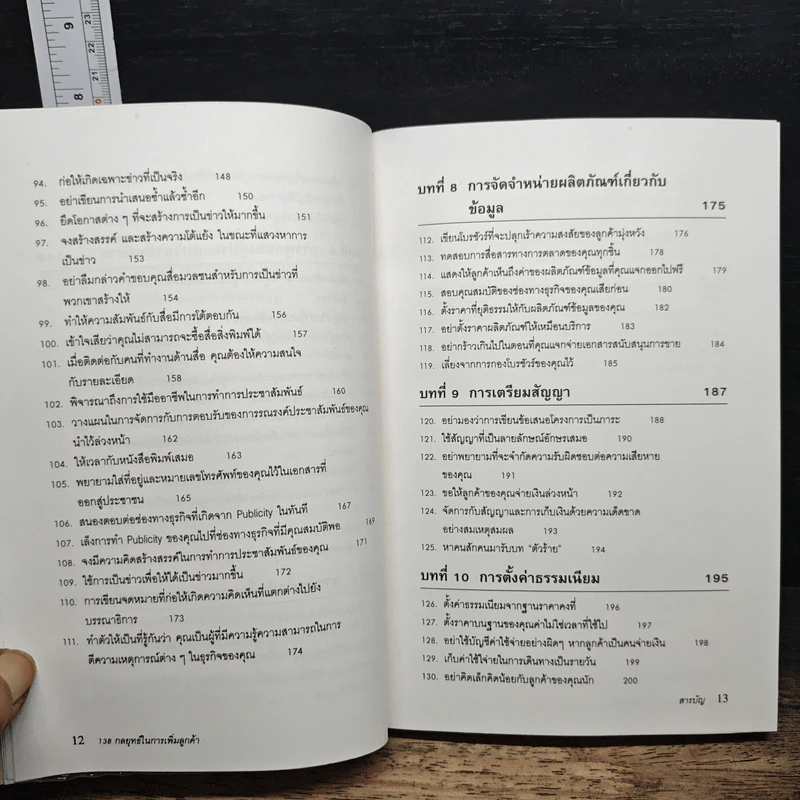 9
8
23
22
21
94. ก่อให้เกิดเฉพาะข่าวที่เป็นจริง 148
95. อย่าเขียนการนำเสนอซ้ำแล้วซ้ำอีก 150
96. ยึดโอกาสต่าง ๆ ที่จะสร้างการเป็นข่าวให้มากขึ้น 151
97. จงสร้างสรรค์ และสร้างความโต้แย้ง ในขณะที่แสวงหาการ
เป็นข่าว 153
98. อย่าลืมกล่าวคำขอบคุณสื่อมวลชนสำหรับการเป็นข่าวที่
พวกเขาสร้างให้ 154
99. ทำให้ความสัมพันธ์กับสื่อมีการโต้ตอบกัน 156
100. เข้าใจเสียว่าคุณไม่สามารถจะซื้อสื่อสิ่งพิมพ์ได้ 157
101. เมื่อติดต่อกับคนที่ทำงานด้านสื่อ คุณต้องให้ความสนใจ
กับรายละเอียด 158
102. พิจารณาถึงการใช้มืออาชีพในการทำการประชาสัมพันธ์ 160
103. วางแผนในการจัดการกับการตอบรับของการรณรงค์ประชาสัมพันธ์ของคุณ
นำไว้ล่วงหน้า 162
104. ให้เวลากับหนังสือพิมพ์เสมอ 163
105. พยายามใส่ที่อยู่และหมายเลขโทรศัพท์ของคุณไว้ในเอกสารที่
ออกสู่ประชาชน 165
106. สนองตอบต่อช่องทางธุรกิจที่เกิดจาก Publicity ในทันที 167
107. เล็งการทำ Publicity ของคุณไปที่ช่องทางธุรกิจที่มีคุณสมบัติพอ 169
108. จงมีความคิดสร้างสรรค์ในการทำการประชาสัมพันธ์ของคุณ 171
109. ใช้การเป็นข่าวเพื่อให้ได้เป็นข่าวมากขึ้น 172
110. การเขียนจดหมายที่ก่อให้เกิดความคิดเห็นที่แตกต่างไปยัง
บรรณาธิการ 173
111. ทำตัวให้เป็นที่รู้กันว่า คุณเป็นผู้ที่มีความรู้ความสามารถในการ
ตีความเหตุการณ์ต่าง ๆ ในธุรกิจของคุณ 174
12 138 กลยุทธ์ในการเพิ่มลูกค้า
บทที่ 8 การจัดจำหน่ายผลิตภัณฑ์เกี่ยวกับ
ข้อมูล 175
112. เขียนโบรชัวร์ที่จะปลุกเร้าความสงสัยของลูกค้ามุ่งหวัง 176
113. ทดสอบการสื่อสารทางการตลาดของคุณทุกชิ้น 178
114. แสดงให้ลูกค้าเห็นถึงค่าของผลิตภัณฑ์ข้อมูลที่คุณแจกออกไปฟรี 179
115. สอบคุณสมบัติของช่องทางธุรกิจของคุณเสียก่อน 180
116. ตั้งราคาที่ยุติธรรมให้กับผลิตภัณฑ์ข้อมูลของคุณ 182
117. อย่าตั้งราคาผลิตภัณฑ์ให้เหมือนบริการ 183
118. อย่ากร้าวเกินไปในตอนที่คุณแจกจ่ายเอกสารสนับสนุนการขาย 184
119. เลี่ยงจากการกองโบรชัวร์ของคุณไว้ 185
บทที่ 9 การเตรียมสัญญา 187
120. อย่ามองว่าการเขียนข้อเสนอโครงการเป็นภาระ 188
121. ใช้สัญญาที่เป็นลายลักษณ์อักษรเสมอ 190
122. อย่าพยายามที่จะจำกัดความรับผิดชอบต่อความเสียหาย
ของคุณ 191
123. ขอให้ลูกค้าของคุณจ่ายเงินล่วงหน้า 192
124. จัดการกับสัญญาและการเก็บเงินด้วยความเด็ดขาด
อย่างสมเหตุสมผล 193
125. หาคนสักคนมารับบท "ตัวร้าย" 194
บทที่ 10 การตั้งค่าธรรมเนียม 195
126. ตั้งค่าธรรมเนียมจากฐานราคาคงที่ 196
127. ตั้งราคาบนฐานของคุณค่าไม่ใช่เวลาที่ใช้ไป 197
128. อย่าใช้บัญชีค่าใช้จ่ายอย่างผิดๆ หากลูกค้าเป็นคนจ่ายเงิน 198
129. เก็บค่าใช้ใจ่ายในการเดินทางเป็นรายวัน 199
130. อย่าคิดเล็กคิดน้อยกับลูกค้าของคุณนัก 200
สารบัญ 13